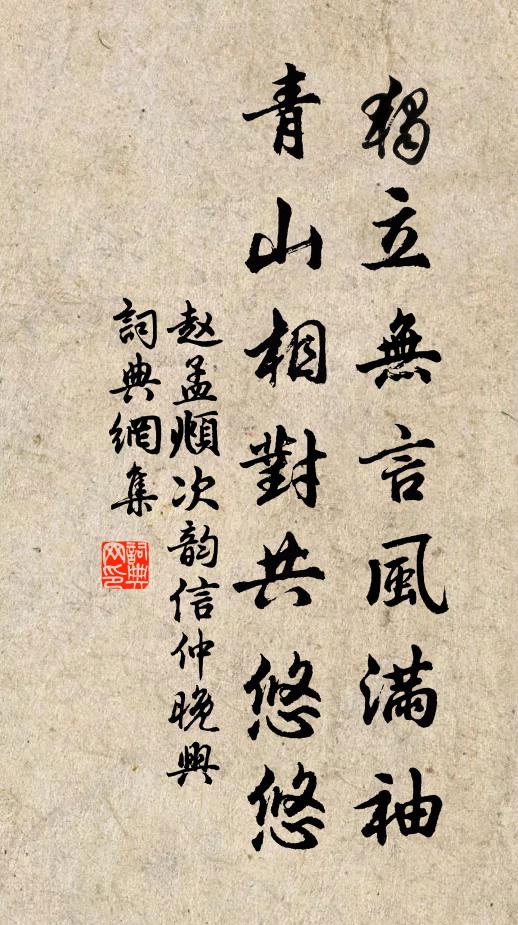 獨立無言風滿袖
青山相對共悠悠
赵孟頫次韵信仲晚興
詞典網集
詞典網印